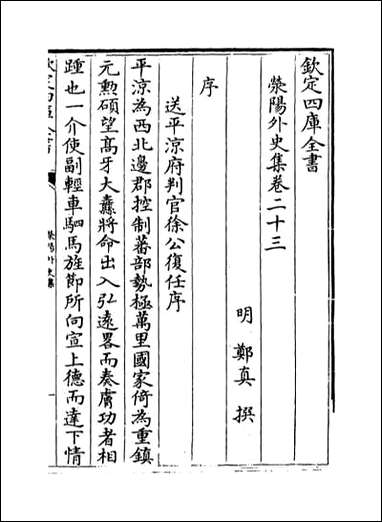 欽定四庫全書
滎陽外史集卷二十三
明 鄭真 撰
序
送平涼府判官徐公復任序
平涼為西北邊郡控制蕃部勢極萬里國家倚為重鎮
元勲碩望髙牙大纛將命出入弘逺畧而奏膚功者相
踵也一介使副輕車駟馬旌節所向宣上德而達下情
滎陽外史集